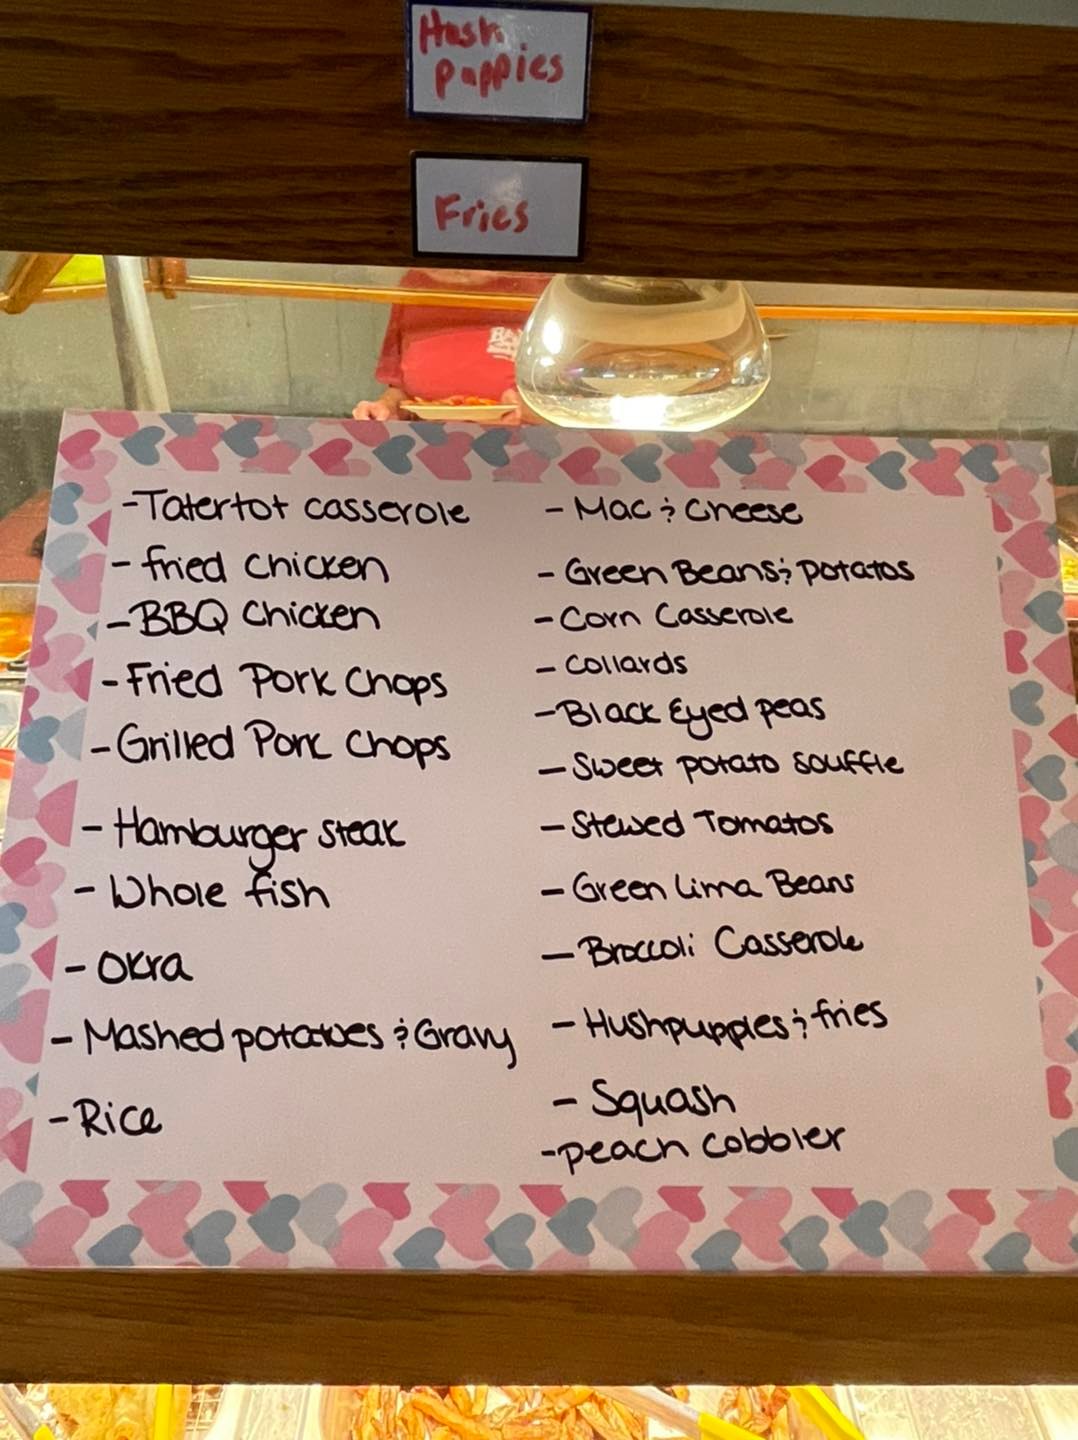 Hush
puppies
Fries
-Tatertot casserole
- fried chicken
-BBQ Chicken
-Fried Pork Chops
-Grilled Pork Chops
- Hamburger steak
- Whole fish
- Okra
- Mashed potatoes & Gravy
-Rice
- Mac & Cheese
- Green Beans & potatos
- Corn Casserole
- collards
-Black Eyed peas
- Sweet potato souffle
- Stewed Tomatos
- Green Lima Beans
- Broccoli Casserole
- Hushpuppies & fries
- Squash
-peach cobbler